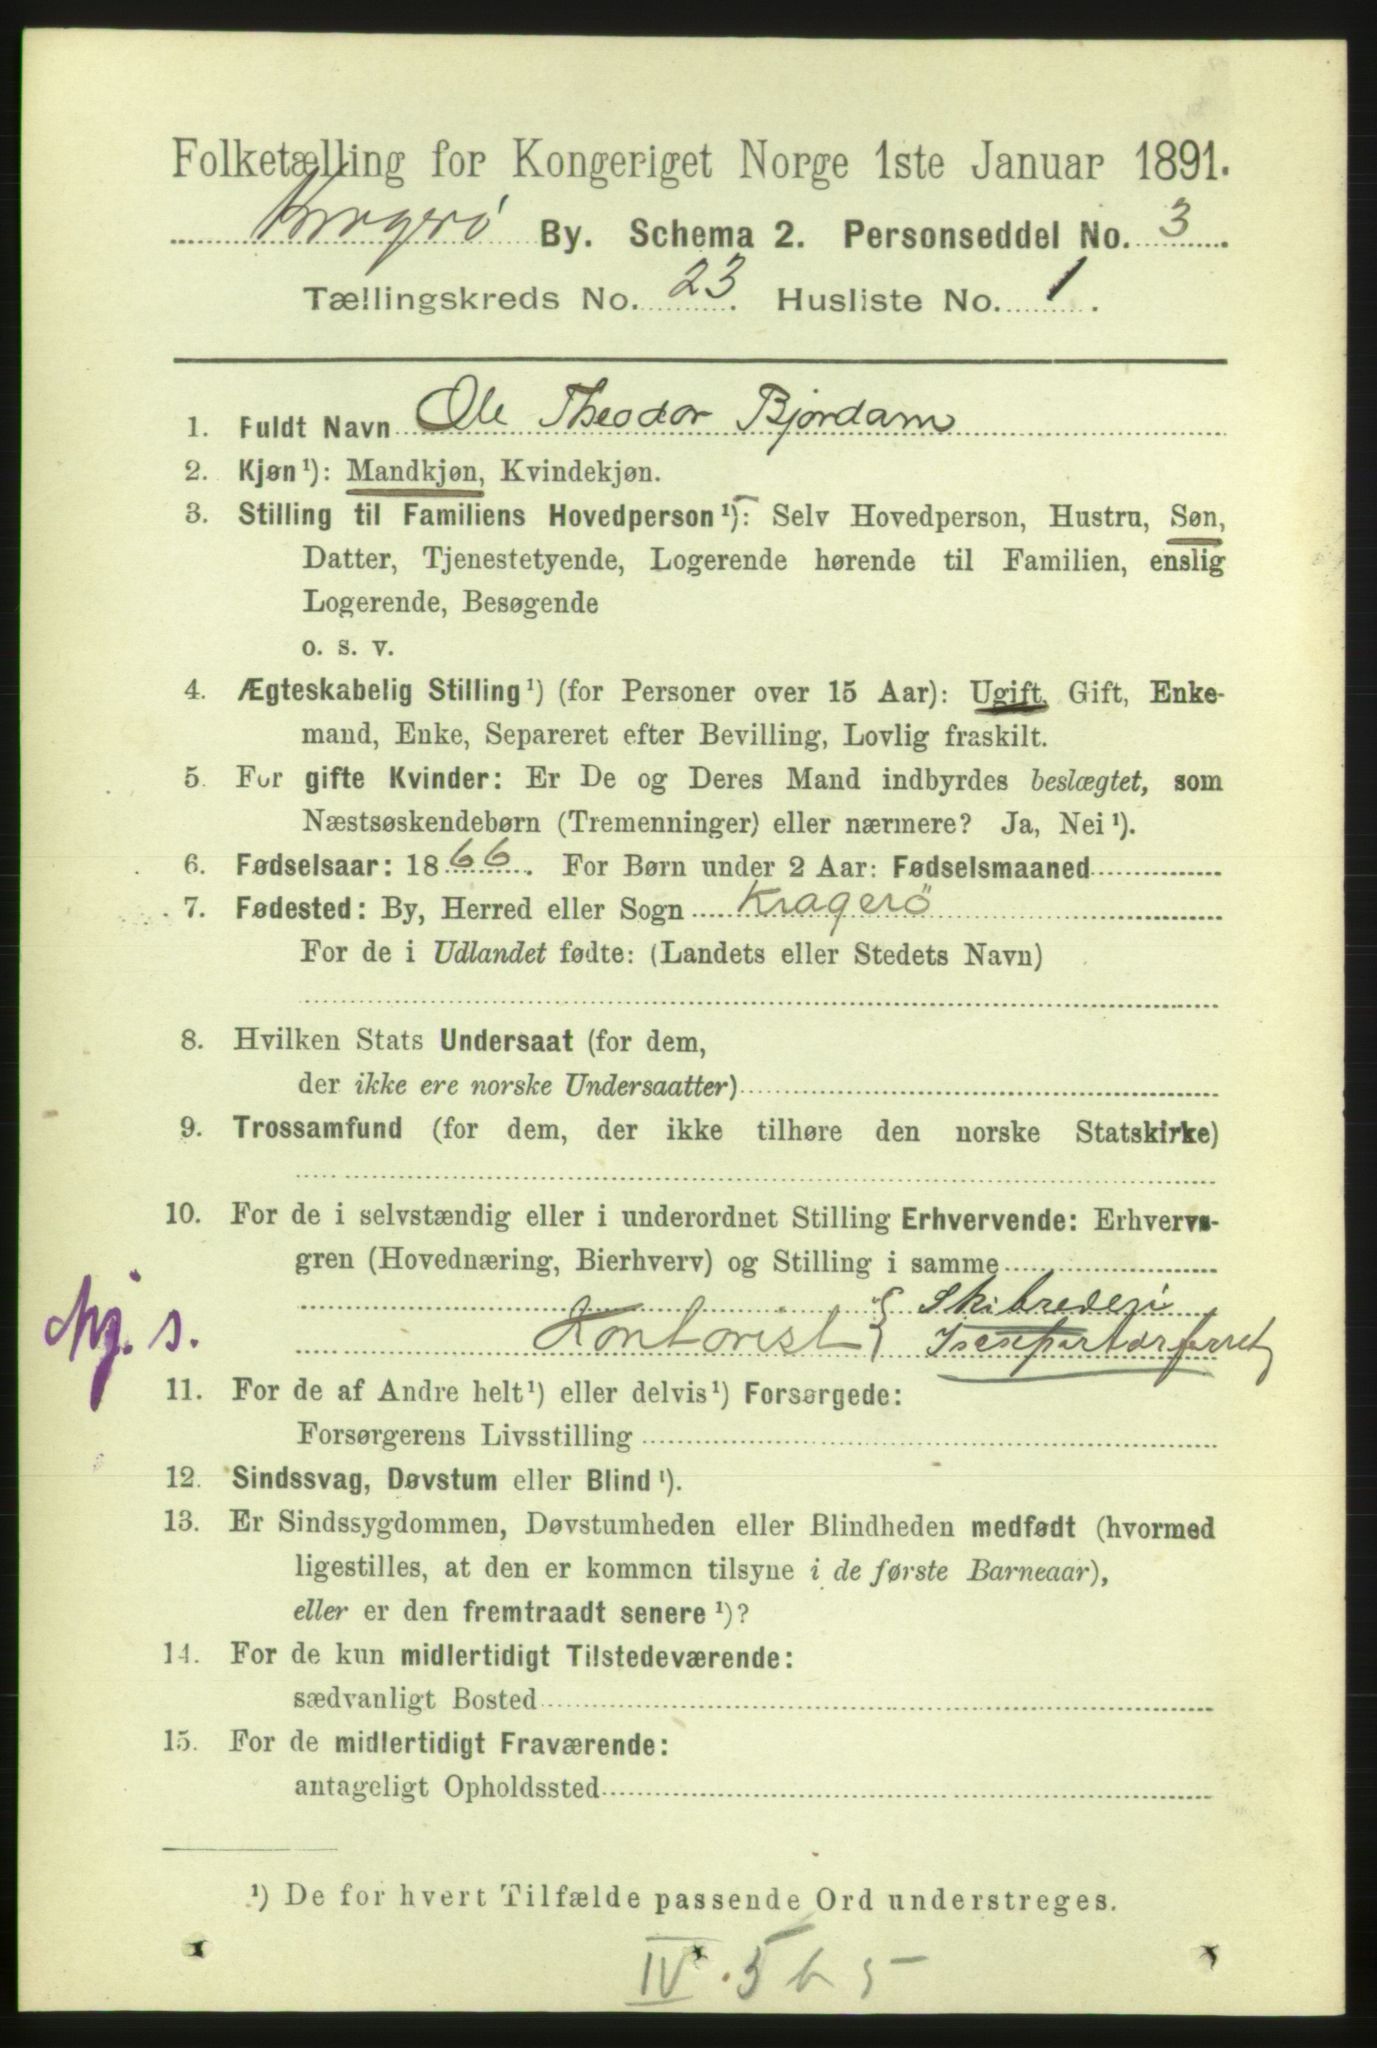 Folketælling for Kongeriget Norge 1ste Januar 1891.
Kragerø By. Schema 2. Personseddel No. 3.
Tællingskreds No. 23. Husliste No. 1.
1. Fuldt Navn Ole Theodor Bjordam
2. Kjøn¹): Mandkjøn, Kvindekjøn.
3. Stilling til Familiens Hovedperson¹): Selv Hovedperson, Hustru, Søn,
Datter, Tjenestetyende, Logerende hørende til Familien, enslig
Logerende, Besøgende
o. s. v.
4. Ægteskabelig Stilling¹) (for Personer over 15 Aar): Ugift, Gift, Enke-
mand, Enke, Separeret efter Bevilling, Lovlig fraskilt.
5. For gifte Kvinder: Er De og Deres Mand indbyrdes beslægtet, som
Næstsøskendebørn (Tremenninger) eller nærmere? Ja, Nei¹).
6. Fødselsaar: 1866. For Børn under 2 Aar: Fødselsmaaned
7. Fødested: By, Herred eller Sogn Kragerö
For de i Udlandet fødte: (Landets eller Stedets Navn)
8. Hvilken Stats Undersaat (for dem,
der ikke ere norske Undersaatter)
9. Trossamfund (for dem, der ikke tilhøre den norske Statskirke)
10. For de i selvstændig eller i underordnet Stilling Erhvervende: Erhvervs-
gren (Hovednæring, Bierhverv) og Stilling i samme
Skibrederi
Kontorist { Isexportørforret
11. For de af Andre helt¹) eller delvis¹) Forsørgede:
Forsørgerens Livsstilling
12. Sindssvag, Døvstum eller Blind¹).
13. Er Sindssygdommen, Døvstumheden eller Blindheden medfødt (hvormed
ligestilles, at den er kommen tilsyne i de første Barneaar),
eller er den fremtraadt senere¹)?
14. For de kun midlertidigt Tilstedeværende:
sædvanligt Bosted
15. For de midlertidigt Fraværende:
antageligt Opholdssted
¹) De for hvert Tilfælde passende Ord understreges.
IV. 5 b 5